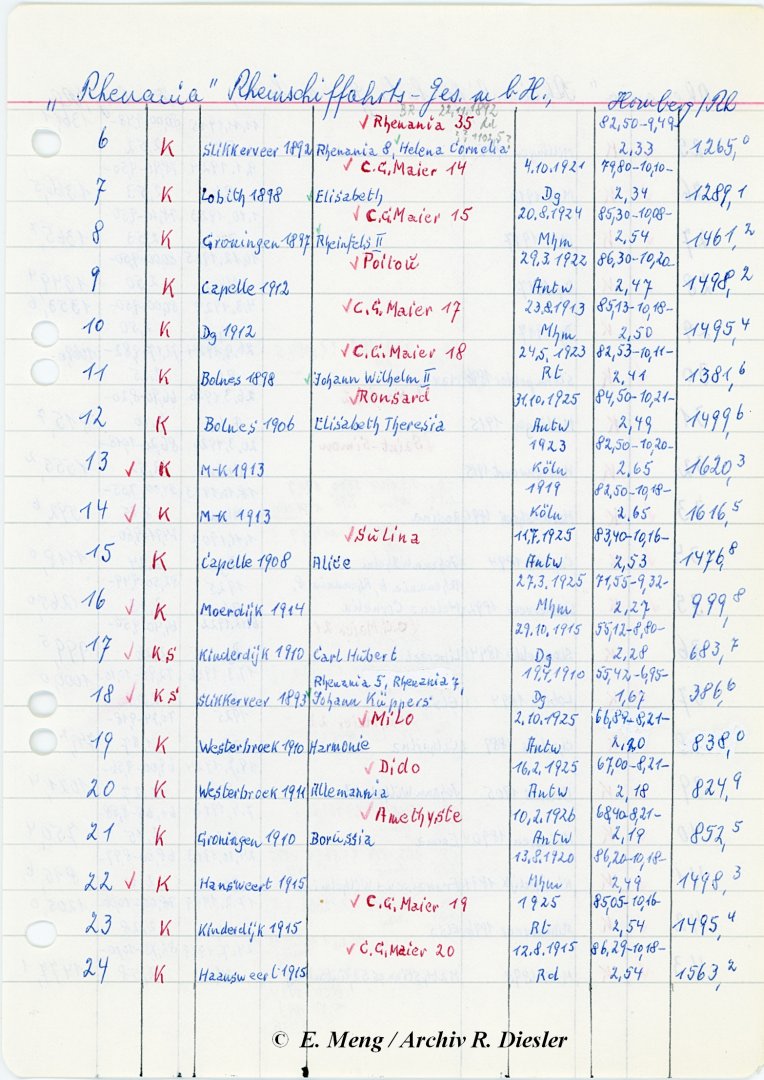 „Rhenania“ Rheinschiffahrts-Ges. m. b. H., Homberg/Rh
BR 22.11.1892
✓Rhenania 35 82,50-9,49-
6 K Slikkerveer 1892 Rhenania 8, Helena Cornelia 2,33 1265,0
✓C.G. Maier 14 4.10.1921 79,80-10,10-
7 K Lobith 1898 ✓Elisabeth Dg 2,34 1289,1
✓C.G. Maier 15 20.8.1924 85,30-10,08-
8 K Groningen 1897 ✓Rheinfels II Mhm 2,54 1461,2
✓Poitou 29.3.1922 86,30-10,20-
9 K Capelle 1912 Antw 2,47 1498,2
✓C.G. Maier 17 23.8.1913 85,13-10,18-
10 K Dg 1912 Mhm 2,50 1495,4
✓C.G. Maier 18 24.5.1923 82,53-10,11-
11 K Bolnes 1898 ✓Johann Wilhelm II Rt 2,41 1381,6
✓Ronsard 31.10.1925 84,50-10,21-
12 K Bolnes 1906 Elisabeth Theresia Antw 2,49 1499,6
1923 82,50-10,20-
13 ✓ K M-K 1913 Köln 2,65 1620,3
1919 82,50-10,18-
14 ✓ K M-K 1913 Köln 2,65 1616,5
✓Sulina 11.7.1925 83,40-10,16-
15 K Capelle 1908 Alice Antw 2,53 1476,8
27.3.1925 71,55-9,32-
16 ✓ K Moerdijk 1914 Mhm 2,27 999,8
29.10.1915 55,12-8,80-
17 ✓ KS Kinderdijk 1910 Carl Hubert Dg 2,28 683,7
Rhenania 5, Rhenania 7, 19.7.1910 55,42-6,95-
18 ✓ KS Slikkerveer 1893 ✓Johann Küppers Dg 1,67 386,6
✓Milo 2.10.1925 66,89-8,21-
19 K Westerbroek 1910 Harmonie Antw 2,20 838,0
✓Dido 16.2.1925 67,00-8,21-
20 K Westerbroek 1911 Allemannia Antw 2,18 824,9
✓Amethyste 10.2.1926 68,40-8,21-
21 K Groningen 1910 Borussia Antw 2,19 852,5
13.8.1920 86,20-10,18-
22 ✓ K Hansweert 1915 Mhm 2,49 1498,3
✓C.G. Maier 19 1925 85,05-10,16-
23 K Kinderdijk 1915 Rt 2,54 1495,4
✓C.G. Maier 20 12.8.1915 86,29-10,18-
24 K Haansweert 1915 Rd 2,54 1563,2
© E. Meng / Archiv R. Diesler